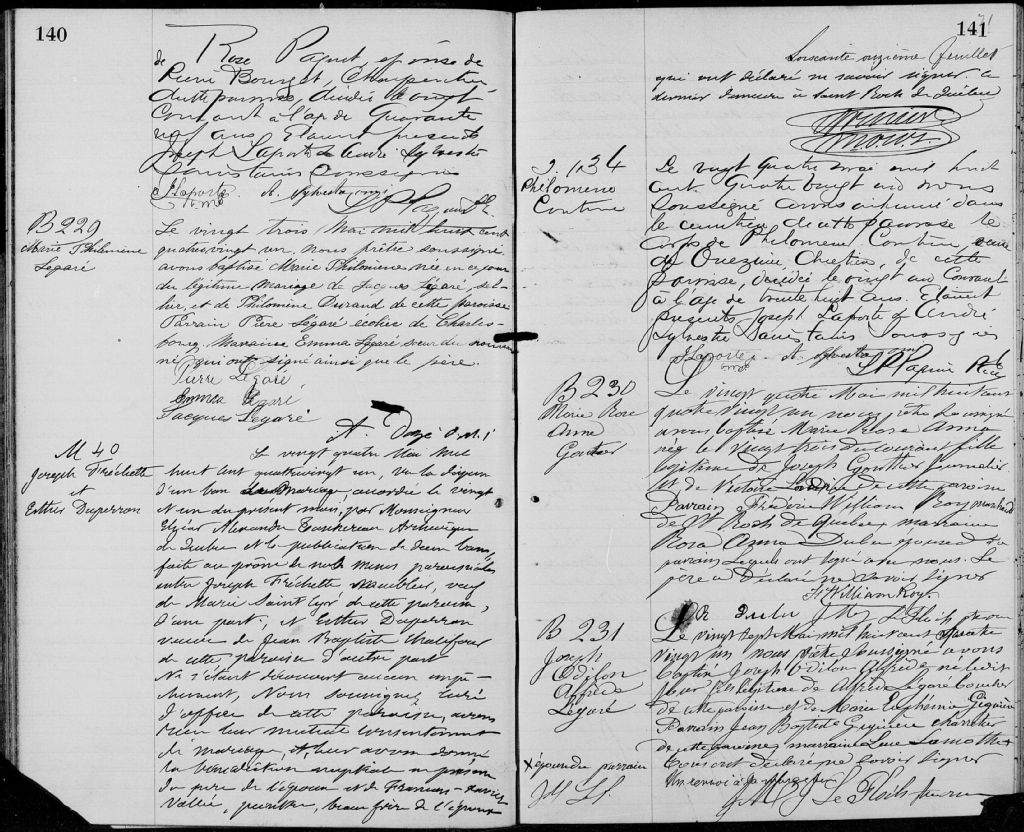 140
de Rose Paquet, épouse de
Pierre Bourget, Charpentier
de cette paroisse, décédée le vingt
Courant à l'age de Quarante
neuf ans. Etaient présents
Joseph Laporte & André Sylvestre
soussignés
J. Laporte A. Sylvestre omi
omi
B 229
Marie Philomène
Légaré
Le vingt trois Mai mil huit cent
quatrevingt un, nous prêtre soussigné
avons baptisé Marie Philomène, née en ce jour
du légitime Mariage de Jacques Légaré, sel-
lier, et de Philomène Durand de cette paroisse
Parrain Pierre Légaré écolier de Charles-
bourg, Marraine Emma Légaré sœur du nouveau
né, qui ont signé ainsi que le père.
Pierre Légaré
Emma Légaré
Jacques Légaré
A. Dozé O.M.I
M 40
Joseph Fréchette
et
Esther Duperron
Le vingt quatre Mai mil
huit cent quatrevingt un, Vu la dispense
d'un ban de Mariage, accordée le vingt
et un du présent mois, par Monseigneur
Elzéar Alexandre Taschereau Archevêque
de Québec et la publication de deux bans
faite au prône de nos messes paroissiales
entre Joseph Fréchette, Meublier, veuf
de Marie Saint Cyr de cette paroisse,
d'une part; et Esther Duperron
veuve de Jean Baptiste
de cette paroisse d'autre part
Ne s'étant découvert aucun empê-
chement, Nous soussigné, Curé
d'office de cette paroisse, avons
reçu leur mutuel consentement
de mariage, et leur avons donné
la bénédiction nuptiale en présence
du père de l'époux et de François-Xavier
Vallée, peintre, beau frère de l'épouse
141
Soixante onzième feuillet
qui ont déclaré ne savoir signer ce
dernier demeure à Saint Roch de Québec
S. 134
Philomene
Couture
Le vingt quatre mai mil huit
cent Quatre vingt un nous
soussigné avons inhumé dans
le cimetière de cette paroisse le
Corps de Philomene Couture,
de Onezime Chretien, de cette
paroisse, décédée le vingt un Courant
à l'age de trente huit ans. Etaient
présents Joseph Laporte & André
Sylvestre soussignés
J Laporte A. Sylvestre omi
omi
B 230
Marie Rose
Anna
Goutier
Le vingt quatre Mai mil huit cent
quatre vingt un nous prêtre soussigné
avons baptisé Marie Rose Anna
née le vingt trois du courant fille
légitime de Joseph Gouthier journalier
et de Victoria de cette paroisse
Parrain Frédéric William Roy marchand
de St Roch de Quebec marraine
Rosa Anna Dubu épouse du
parain lesquels ont signé avec nous. Le
père a déclaré ne savoir signer
F. William Roy.
R Dubu J M J Le Floch
B 231
Joseph
Odilon
Alfred
Légaré
Le vingt sept Mai mil huit cent quatre
vingt un nous prêtre soussigné avons
baptisé Joseph Odilon Alfred né le dit
jour fils légitime de Alfred Légaré boucher
de cette paroisse et de Marie Euphémie Giguère
Parrain Jean Baptiste Giguère charretier
de cette paroisse marraine Luce Lamothe
X
savoir signer
Un renvoi à la marge
J M J Le Floch
X épouse du parrain
J M L f.